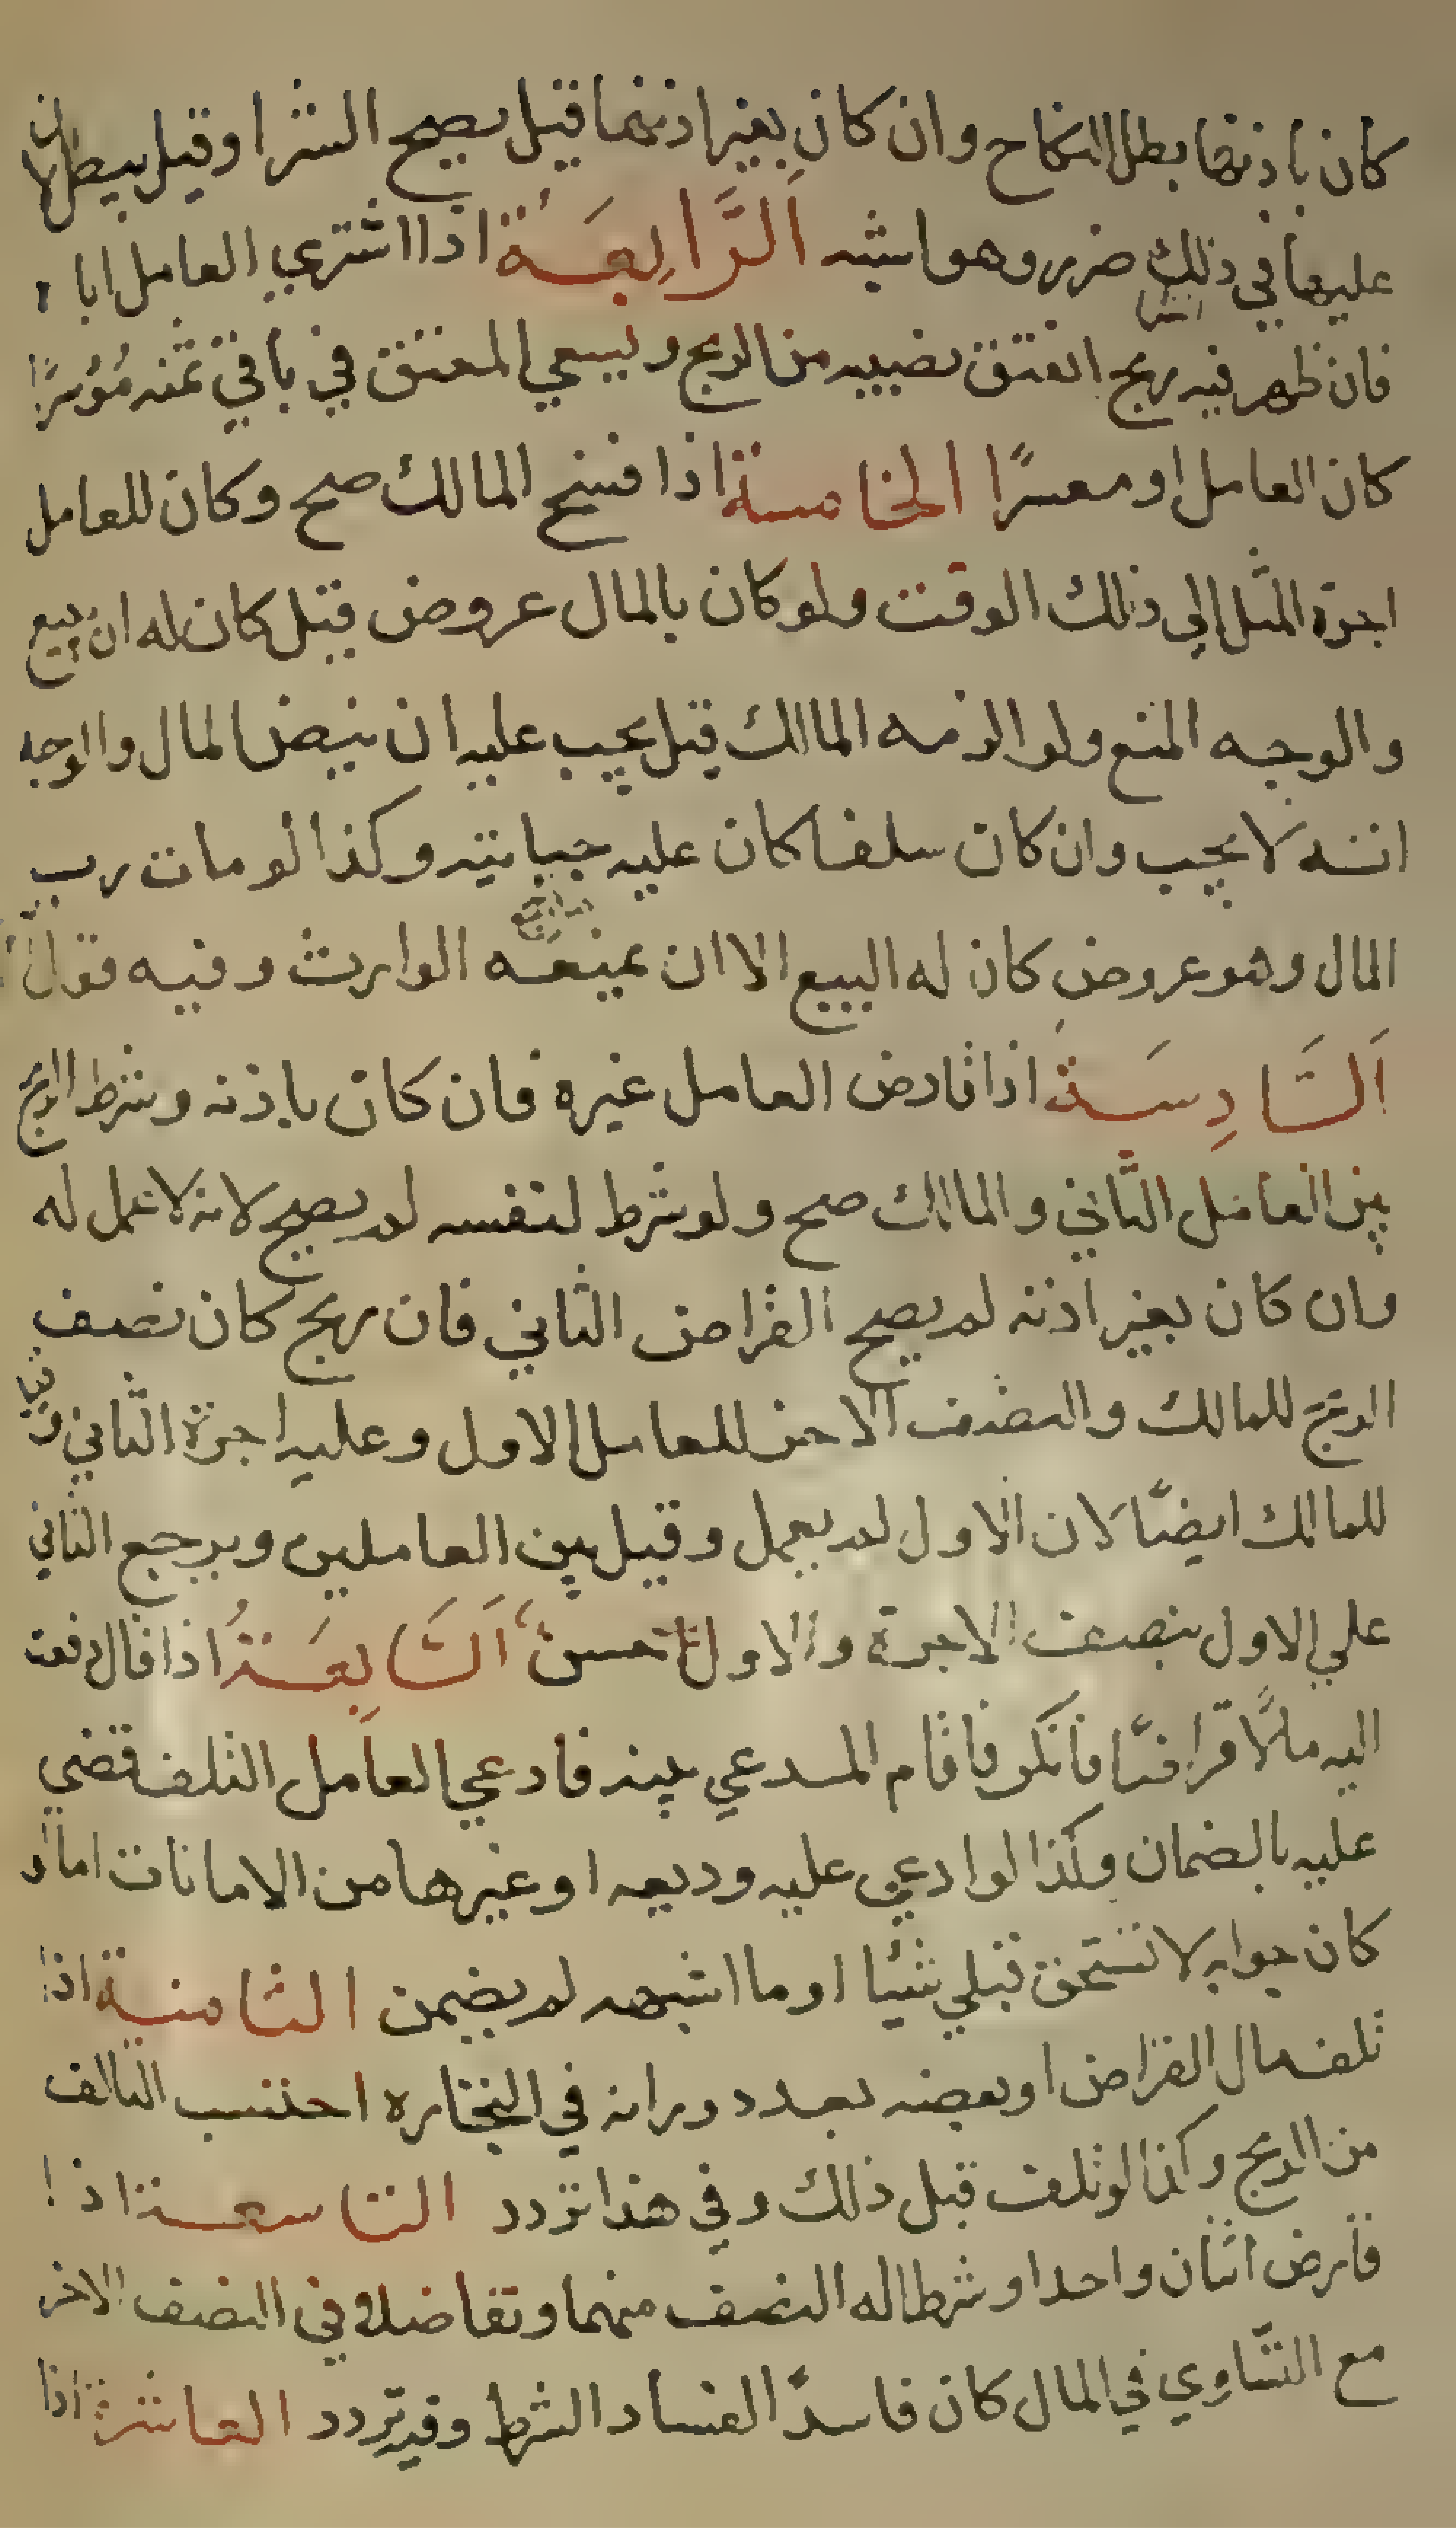 كان باذنها بطل النكاح وان كان بغير اذنها قيل يصح الشرا وقيل يبطل لان
عليها في ذلك ضرر وهو اشبه الرَّابِعَة اذا اشتري العامل اباه
فان ظهر فيه ربح انعتق نصيبه من الربح ويسعي المعتق في باقي ثمنه مُوْسرًا
كان العامل او معسرًا الخامسة اذا فسخ المالك صح وكان للعامل
اجرة المثل الي ذلك الوقت ولو كان بالمال عروض قيل كان له ان يبيع
والوجه المنع ولو الزمه المالك قيل يجب عليه ان ينض المال والوجه
انه لا يجب وان كان سلفا كان عليه جبايته وكذا لو مات رب
المال وهو عروض كان له البيع الا ان يمنعه الوارث وفيه قول
اَلسَّادِسَة اذا قارض العامل غيره فان كان باذنه وشرط الربح
بين العامل الثاني والمالك صح ولو شرط لنفسه لم يصح لانه لا عمل له
وان كان بغير اذنه لم يصح القراض الثاني فان ربح كان نصف
الربح للمالك والنصف الاخر للعامل الاول وعليه اجرة الثاني وقيل
للمالك ايضًا لان الاول لم يعمل وقيل بين العاملين ويرجع الثاني
علي الاول بنصف الاجرة والاول احسن اَلسَّابِعَةُ اذا قال دفعت
اليه مالًا قراضًا فانكر فاقام المدعي بينه فادعي العامل التلف قضي
عليه بالضمان وكذا لو ادعي عليه وديعه او غيرها من الامانات اما لو
كان جوابه لا تستحق قبلي شيئا او ما اشبهه لم يضمن الثامنة اذا
تلف مال القراض او بعضه بعد دورانه في التجاره احتسب التالف
من الربح وكذا لو تلف قبل ذلك وفي هذا تردد التاسعة اذا
قارض اثنان واحدا وشرطا له النصف منهما وتفاضلا في النصف الاخر
مع التساوي في المال كان فاسدًا لفساد الشرط وفيه تردد العاشرة اذا